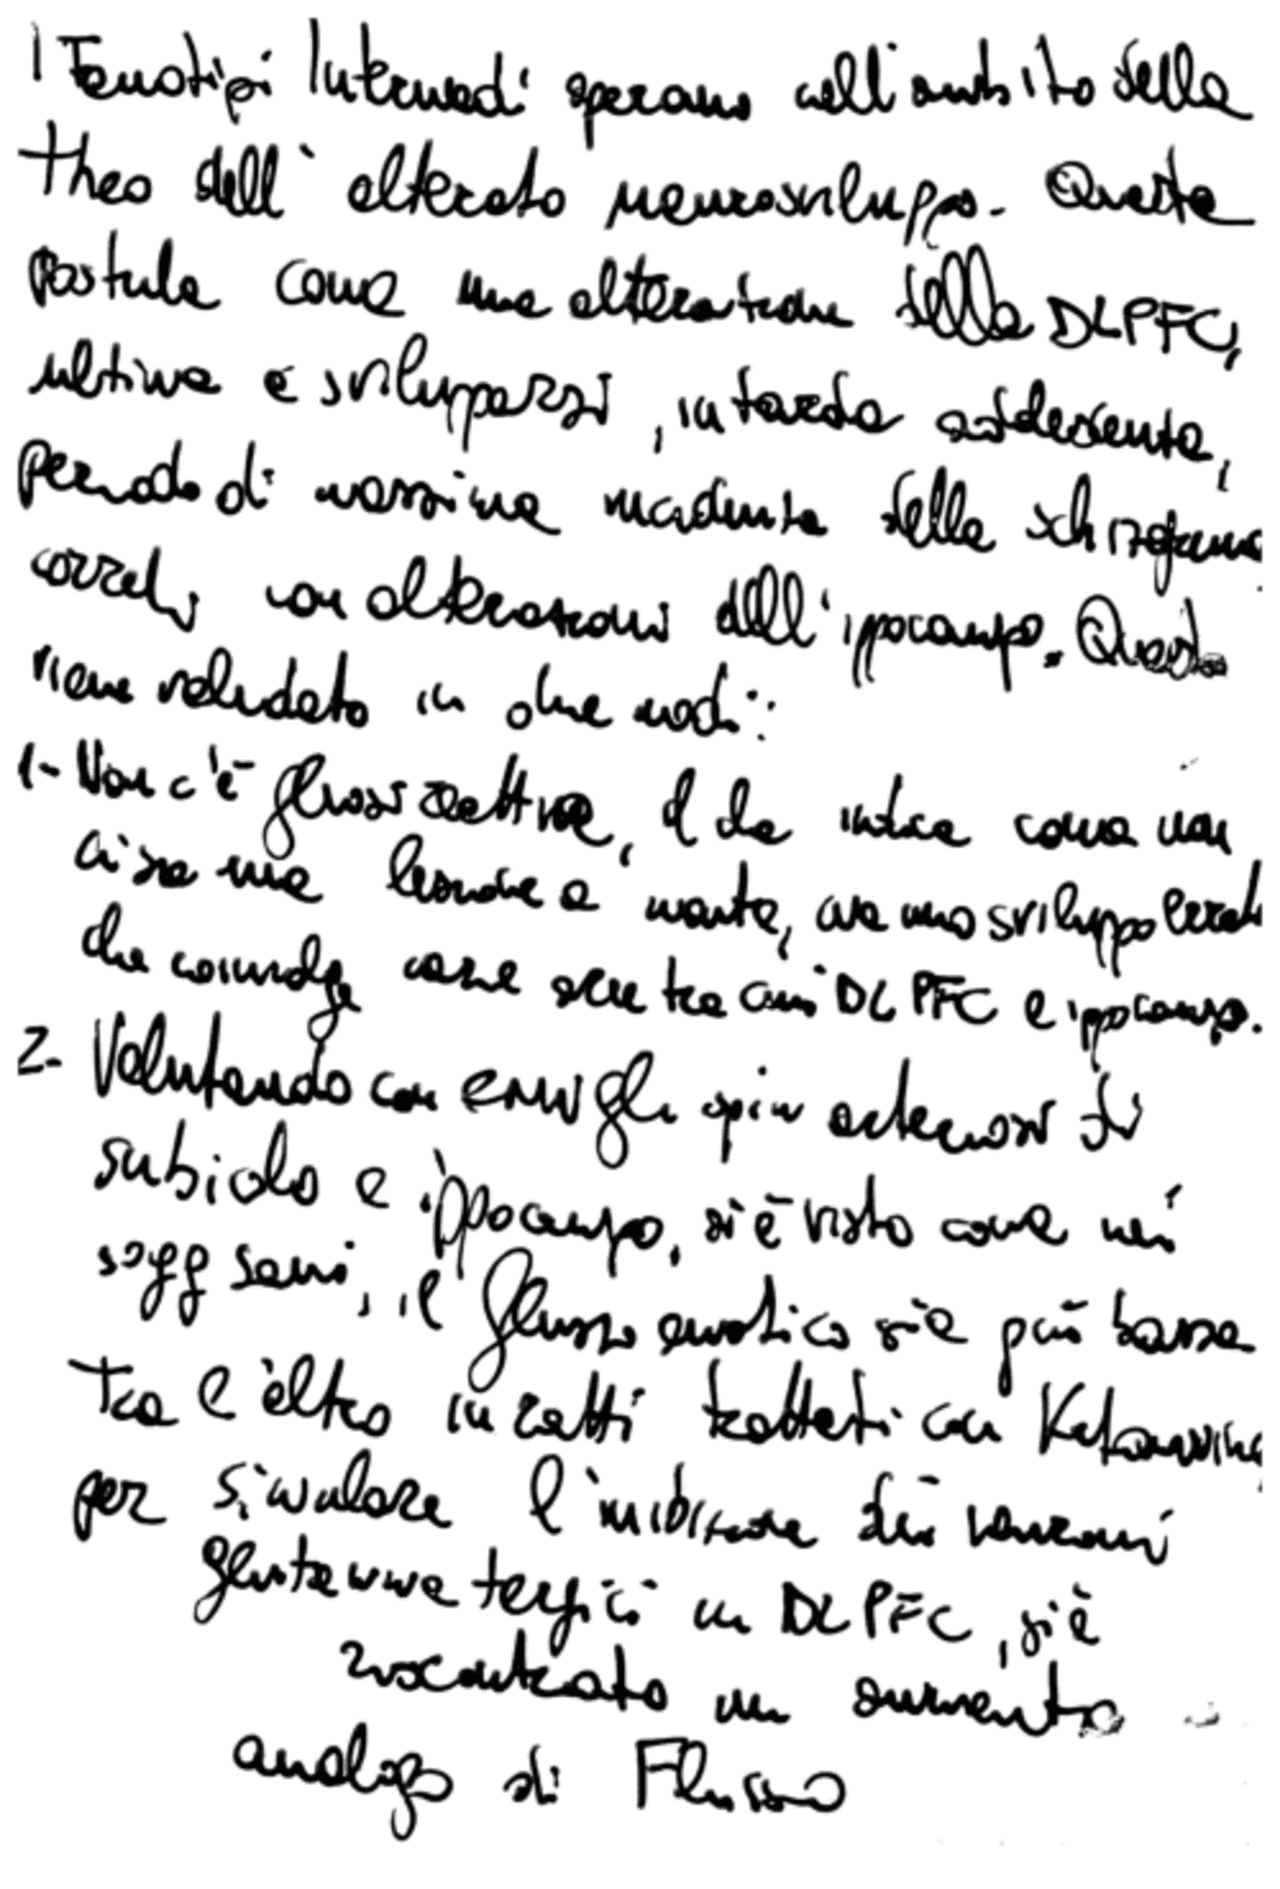 I Fenotipi Intermedi operano nell'ambito della
theo dell'alterato neurosviluppo. Questa
postula come una alterazione della DLPFC,
ultima a svilupparsi, in tarda adolescenza,
periodo di massima incidenza della schizofrenia
correli con alterazioni dell'ippocampo. Questo
viene valutato in due modi:
1- Non c'è gliosi reattiva, il che indica come non
ci sia una lesione a monte, ma uno sviluppo errato
che coinvolge come tra DLPFC e ippocampo.
2- Valutando con gli spin arteriosi di
subicolo e ippocampo, si è visto come nei
sogg sani, il flusso ematico sia più basso
Tra l'altro in ratti trattati con Ketamina
per simulare l'inibizione dei neuroni
glutammatergici in DLPFC, si è
riscontrato un aumento
analogo di Flusso